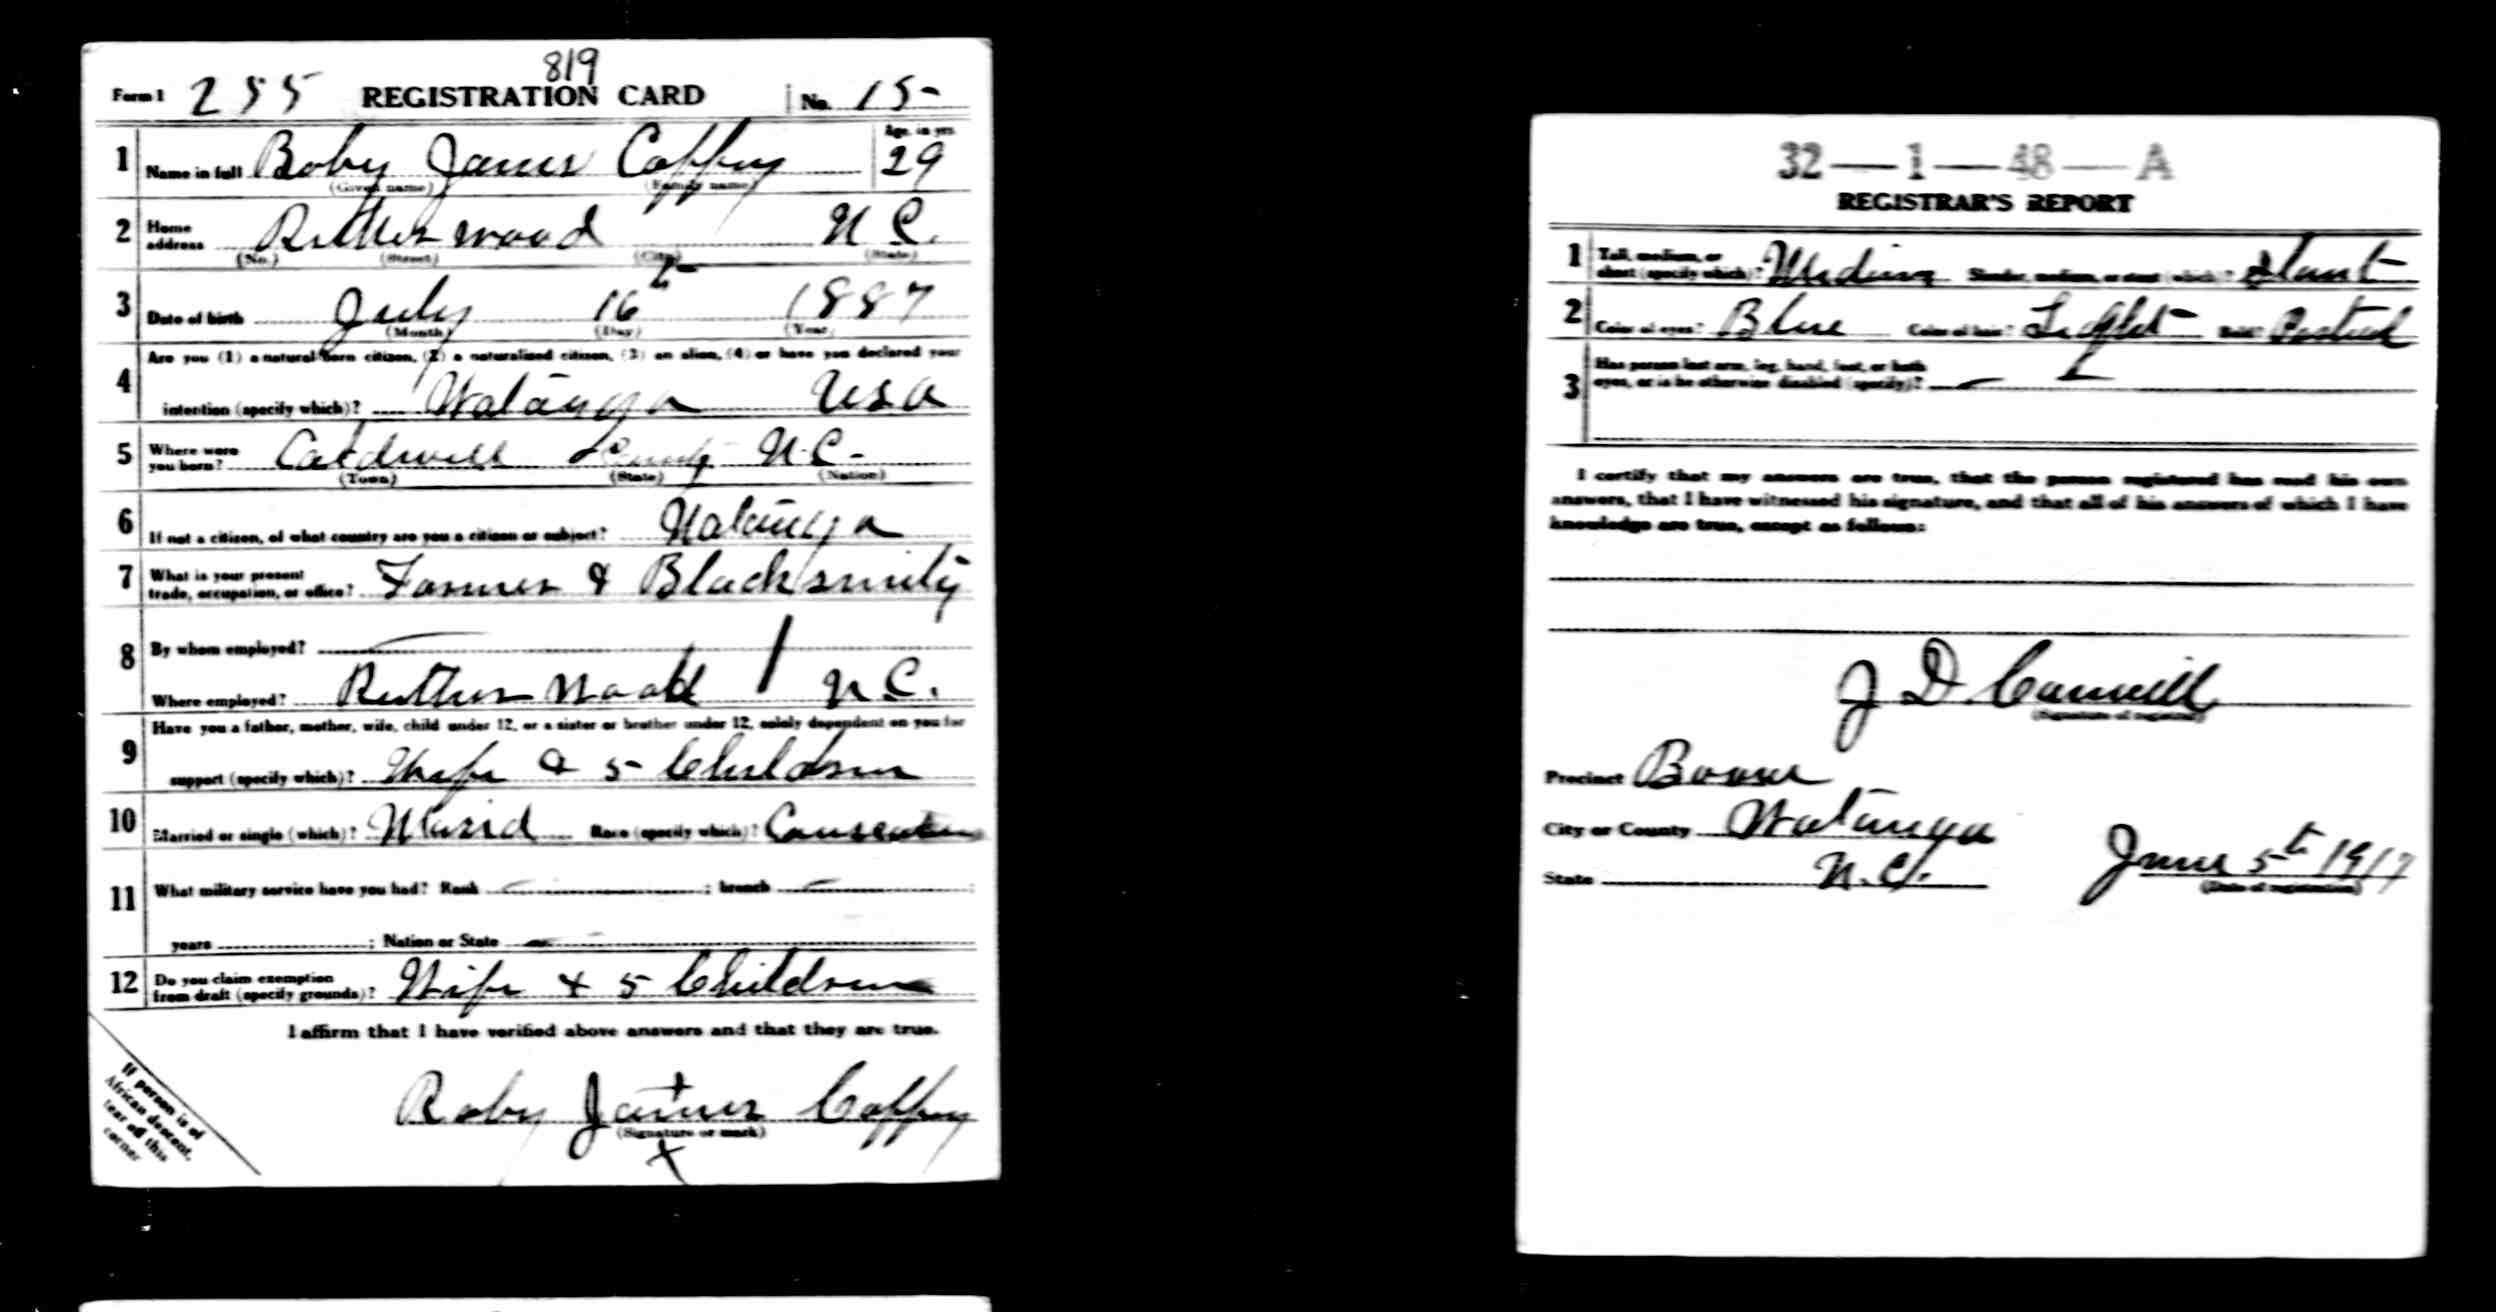 819
Form 1 255 REGISTRATION CARD No. 15-
1 Name in full Roby James Coffey Age, in yrs. 29
(Given name) (Family name)
2 Home address Rutherwood N C.
(No.) (Street) (City) (State)
3 Date of birth July 16th 1887
(Month) (Day) (Year)
4 Are you (1) a natural born citizen, (2) a naturalized citizen, (3) an alien, (4) or have you declared your
intention (specify which)? Watauga USA
5 Where were you born? Caldwell County N.C.
(Town) (State) (Nation)
6 If not a citizen, of what country are you a citizen or subject? Watauga
7 What is your present trade, occupation, or office? Farmer & Blacksmith
8 By whom employed?
Where employed? Ruther Wood N.C.
9 Have you a father, mother, wife, child under 12, or a sister or brother under 12, solely dependent on you for
support (specify which)? Wife & 5 Children
10 Married or single (which)? Marid Race (specify which)?
11 What military service have you had? Rank ; branch ;
years ; Nation or State
12 Do you claim exemption from draft (specify grounds)? Wife & 5 Children
I affirm that I have verified above answers and that they are true.
Roby James Coffey
(Signature or mark)
X
If person is of
African descent,
tear off this
corner
32—1—48—A
REGISTRAR'S REPORT
1 Tall, medium, or short (specify which)? Medium Slender, medium, or stout (which)? Stout
2 Color of eyes? Blue Color of hair? Light Bald?
3 Has person lost arm, leg, hand, foot, or both
eyes, or is he otherwise disabled (specify)?
I certify that my answers are true, that the person registered has read his own
answers, that I have witnessed his signature, and that all of his answers of which I have
knowledge are true, except as follows:
J D
(Signature of registrar)
Precinct Boone
City or County Watauga
State N.C. June 5th 1917
(Date of registration)